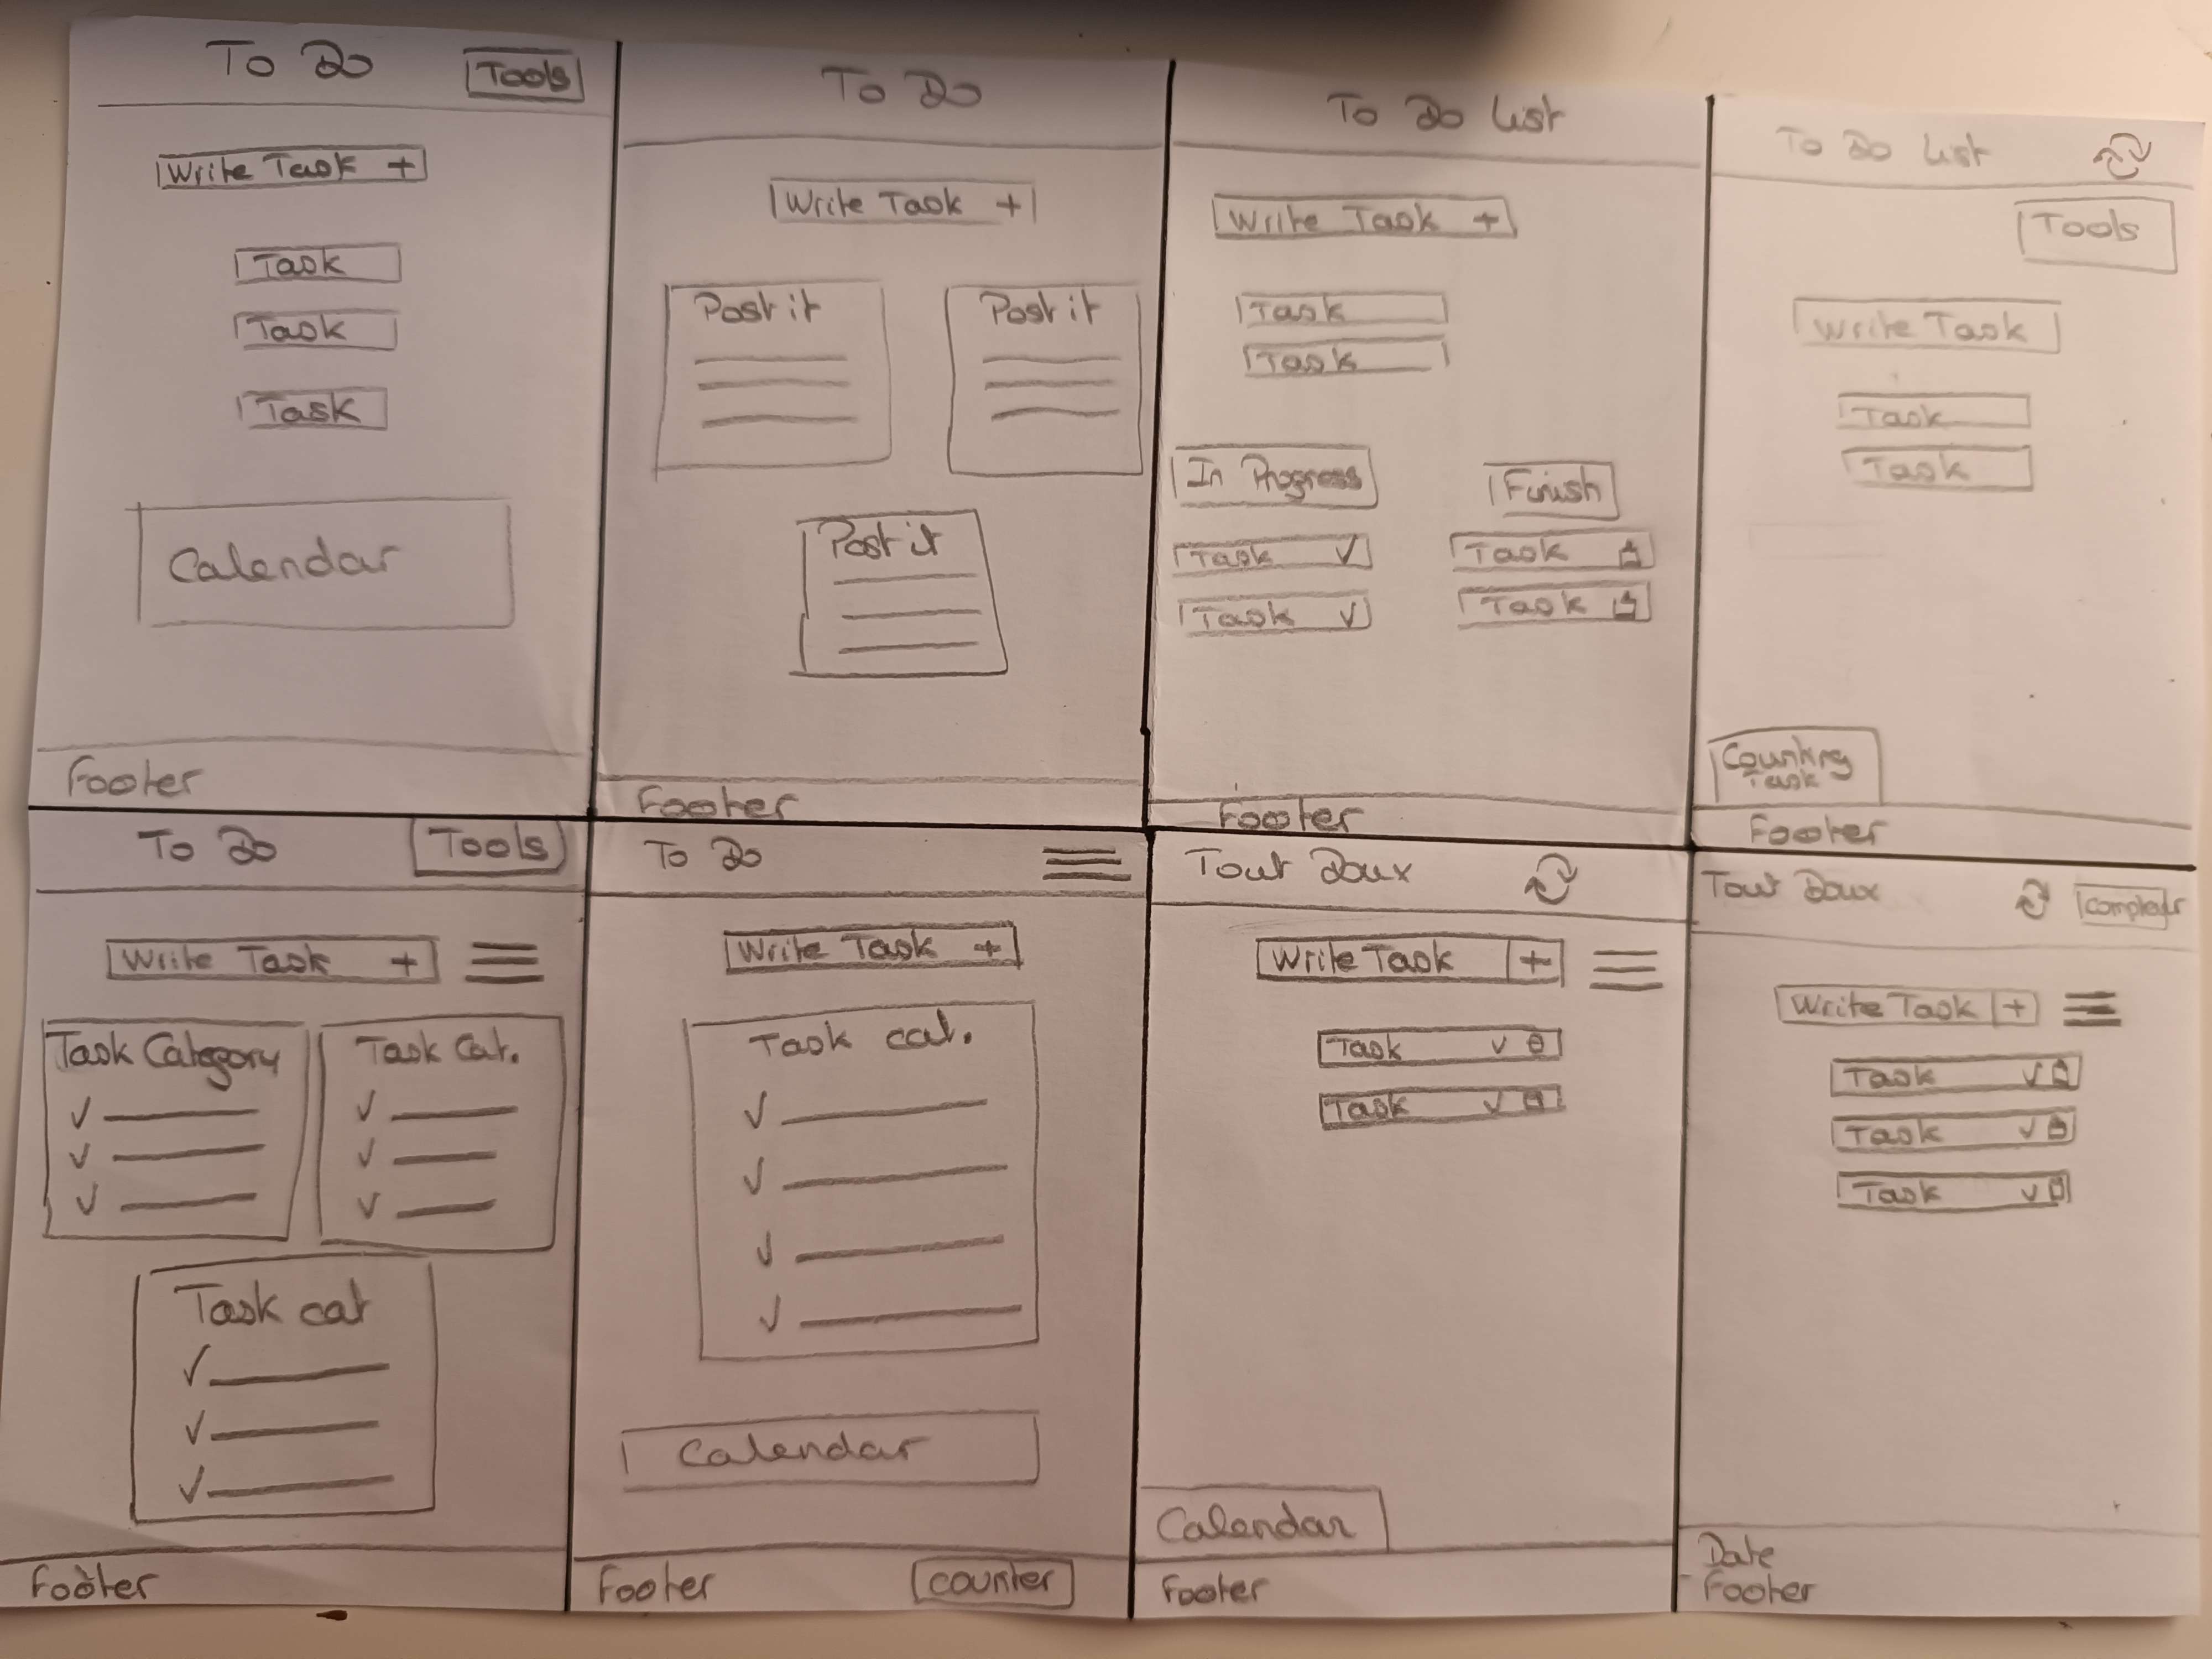 To Do
Tools
Write Task +
Task
Task
Task
Calendar
Footer
To Do
Write Task +
Post it
Post it
Post it
Footer
To Do List
Write Task +
Task
Task
In Progress
Finish
Task ✓
Task
Task ✓
Task
Footer
To Do List
Tools
Write Task
Task
Task
Counting
Task
Footer
To Do
Tools
Write Task +
Task Category
✓
✓
✓
Task Cat.
✓
✓
✓
Task cat
✓
✓
✓
Footer
To Do
Write Task +
Task cat.
✓
✓
✓
✓
Calendar
Footer
counter
Tout Doux
Write Task +
Task ✓
Task ✓
Calendar
Footer
Tout Doux
Write Task +
Task ✓
Task ✓
Task ✓
Date
Footer